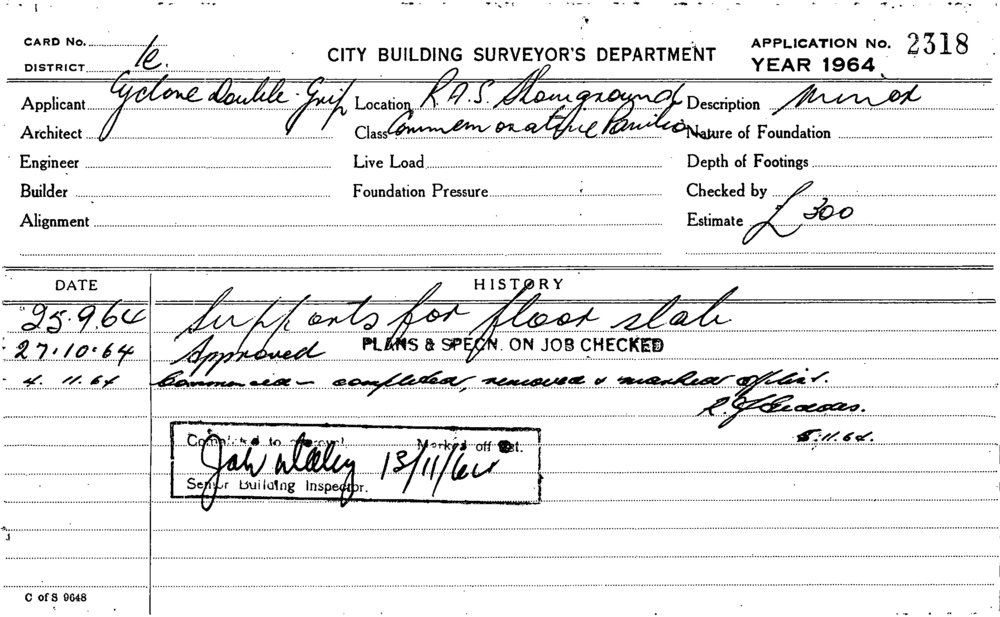 CARD No.
CITY BUILDING SURVEYOR'S DEPARTMENT
APPLICATION No. 2318
DISTRICT 1c.
YEAR 1964
Applicant Cyclone Double-Grip
Location R.A.S. Showground
Description Minor
Architect
Class Commemorative Pavilio
Nature of Foundation
Engineer
Live Load
Depth of Footings
Builder
Foundation Pressure
Checked by
Alignment
Estimate £300
DATE
HISTORY
25.9.64 Supports for floor slab
27.10.64 Approved PLANS & SPECN. ON JOB CHECKED
4.11.64 completed, removed & marked off list.
5.11.64.
Completed to approval Marked off list.
13/11/64
Senior Building Inspector.
C of S 9648